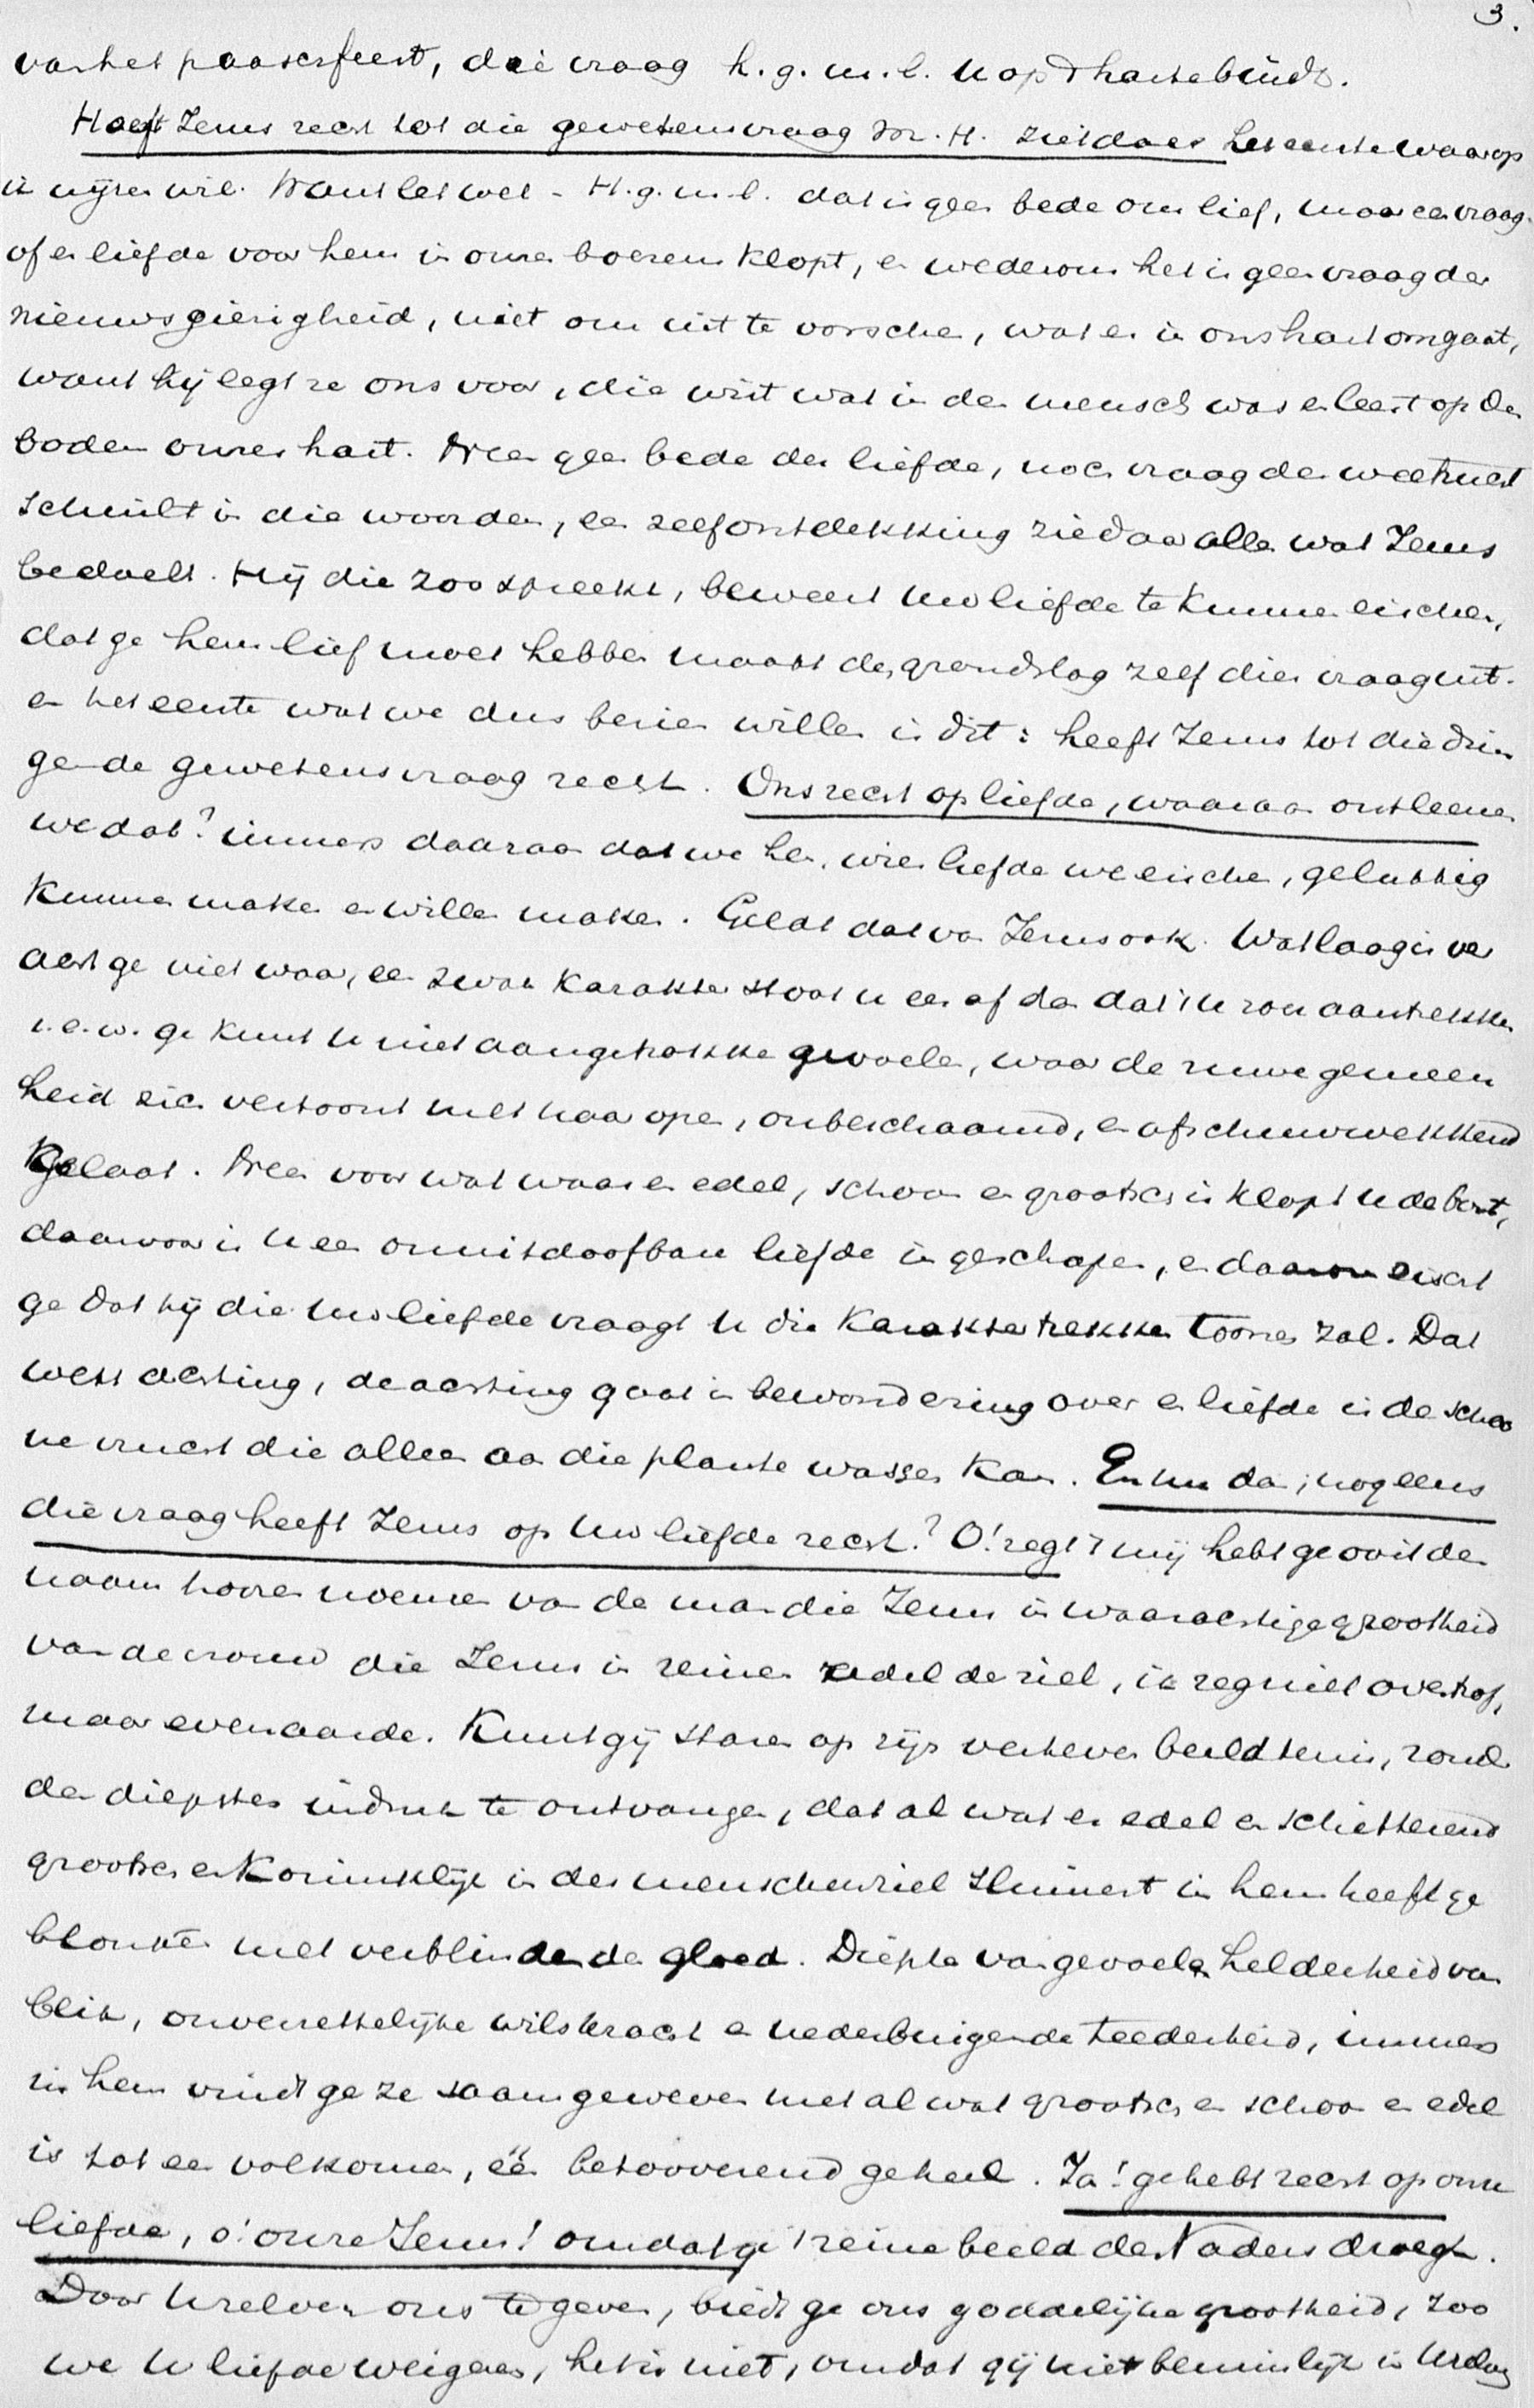 3.
van het paaschfeest, die vraag h. g. m. l. U op 't harte bindt.
Heeft Jezus recht tot die gewetensvraag m. H. ziet daar het eerste waarop
ik wijzen wil. Want let wel - H. g. m. l. dat is geen bede om lief, maar een vraag
of er liefde voor hem in onzen boezem klopt, en wederom het is geen vraag der
nieuwsgierigheid, niet om uit te vorschen, wat er in ons hart omgaat,
want hij legt ze ons voor, die wist wat in den mensch was en leest op den
bodem onzes hart. Neen geen bede der liefde, noch vraag der weetlust
schuilt in die woorden, een zelfontdekking ziedaar alles wat Jezus
bedoelt. Hij die zoo spreekt, beweert Uw liefde te kunnen eischen,
dat ge hem lief moet hebben maakt den grondslag zelf dier vraag uit.
en het eerste wat we dus bezien willen is dit: heeft Jezus tot die drin
gende gewetensvraag recht. Ons recht op liefde, waaraan ontleenen
we dat? immers daaraan dat we hen, wier liefde we eischen, gelukkig
kunnen maken en willen maken. Geldt dat van Jezus ook. Wat laag is ver
acht ge niet waar, een zwak karakter stoot U eer af dan dat 't U zou aantrekken
i. e. w. ge kunt U niet aangetrokken gevoelen, waar de ruwe gemeen
heid zich vertoont met haar open, onbeschaamd, en afschuwwekkend
gelaat. Neen voor wat waar en edel, schoon en grootsch is klopt U de borst,
daarvoor is U een onuitdoofbare liefde in geschapen, en daarom eischt
ge dat hij die Uw liefde vraagt U die karaktertrekken toonen zal. Dat
wekt achting, de achting gaat in bewondering over en liefde is de schoo
ne vrucht die alleen aan die plante wassen kan. En nu dan, nog eens
die vraag heeft Jezus op Uw liefde recht? O! zegt 't mij hebt ge ooit den
naam hooren noemen van de man die Jezus in waarachtige grootheid
van de vrouw die Jezus in reinen adel der ziel, ik zeg niet overtrof,
maar evenaarde. Kunt gij staren op zijn verheven beeldtenis, zonder
den diepsten indruk te ontvangen, dat al wat er edel en schitterend
grootsch en koninklijk in des menschen ziel sluimert in hem heeft ge
blonken met verblindenden gloed. Diepte van gevoelen helderheid van
blik, onverzettelijke wilskracht en nederbuigende teederheid, immers
in hem vindt ge ze saamgeweven met al wat grootsch en schoon en edel
is tot een volkomen, één betooverend geheel. Ja! ge hebt recht op onze
liefde, o! onze Jezus! omdat gij 't reine beeld des Vaders draagt.
Door Uzelven ons te geven, biedt ge ons goddelijke grootheid, zoo
we U liefde weigeren, het is niet, omdat gij niet beminlijk in Uzelven